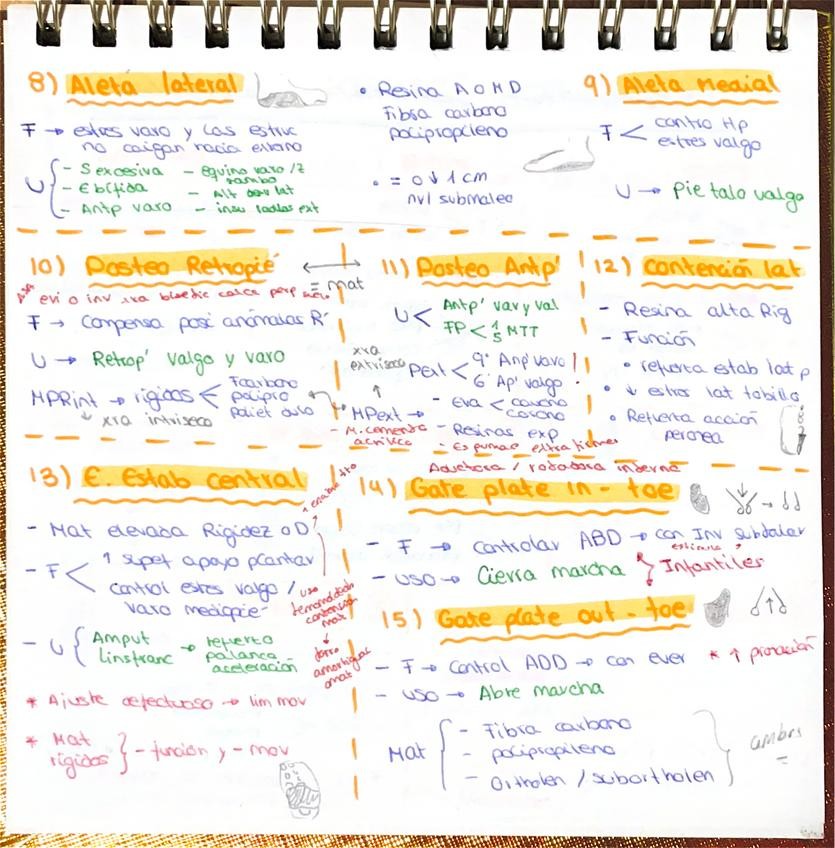 8) Aleta lateral
F → estres varo y las estruc
no caigan hacia externo
U { - S excesiva - equino varo /z
rambo
- E bífida
- Antp varo - insu
• Resina A o M D
Fibra carbono
polipropileno
• = o ↓ 1 cm
nvl submaleo
9) Aleta Medial
F < contro Hp
estres valgo
U → Pie talo valgo
10) Posteo Retropié
≡ mat
* evi o inv xra
F → Compensa posi anómalas R'
U → Retrop' valgo y varo
MPRint → rígidos < F carbono
polipro
poliet
↳ xra intriseco
11) Posteo Antp'
U < Antp' var y val
FP < 1 5 MTT
xra
extriseco
↑
PExt < 9° Anp' varo
6° Ap' valgo
!
MPext → - Eva < caucho
corcho
- Resinas exp
- Espumas
- M. cemento
acrílico
12) Contención lat
- Resina alta Rig
- Función
• refuerza estab lat p
• ↓ estres lat tobillo
• Refuerza acción
peronea
13) E. Estab central
- Mat elevada Rigidez o D
- F < ↑ supef apoyo plantar
control estres valgo /
varo mediopié
uso
contención
mat
↓
forro
amortiguac
mat
- U { Amput
Linsfranc → refuerzo
palanca
aceleración
* Ajuste defectuoso → lim mov
* Mat
rígidos } - función y - mov
Aductora / rotadora interna
14) Gate plate in - toe
- F → controlar ABD → con Inv subtalar
- USO → Cierra marcha
Infantiles
15) Gate plate out - toe
- F → Control ADD → con ever * ↑ pronación
- USO → Abre marcha
Mat { - Fibra carbono
- polipropileno
- Ortholen / subortholen }
ambos